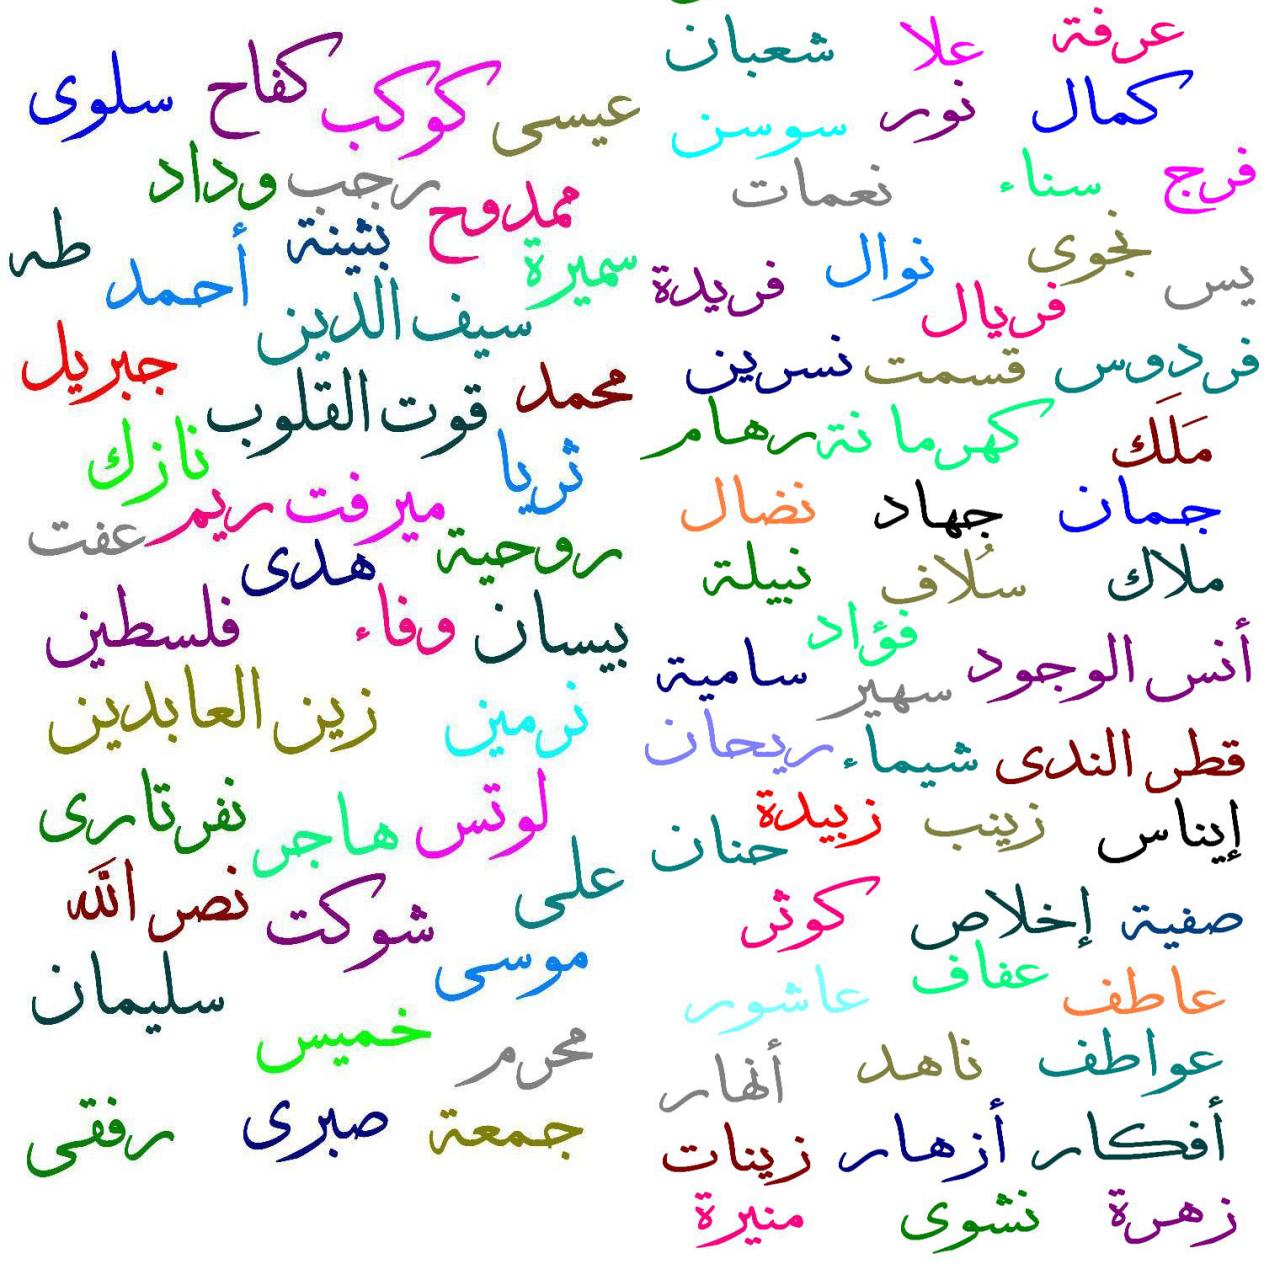 عرفة علا شعبان
كمال نور سوسن
فرج سناء نعمات
نجوى نوال فريدة
يس فريال
فردوس قسمت نسرين
مَلَك كهرمانة رهام
جمان جهاد نضال
ملاك سُلاف نبيلة
أنس الوجود فؤاد سامية
سهير
قطر الندى شيماء ريحان
إيناس زينب زبيدة حنان
صفية إخلاص كوثر
عاطف عفاف عاشور
عواطف ناهد أنهار
أفكار أزهار زينات
زهرة نشوى منيرة
عيسى كوكب كفاح سلوى
ممدوح رجب وداد
سميرة بثينة أحمد طه
سيف الدين جبريل
محمد قوت القلوب
ثريا نازك
ميرفت ريم عفت
روحية هدى
بيسان وفاء فلسطين
نرمين زين العابدين
لوتس هاجر نفرتارى
على شوكت نصر الله
موسى سليمان
محرم خميس
جمعة صبرى رفقى